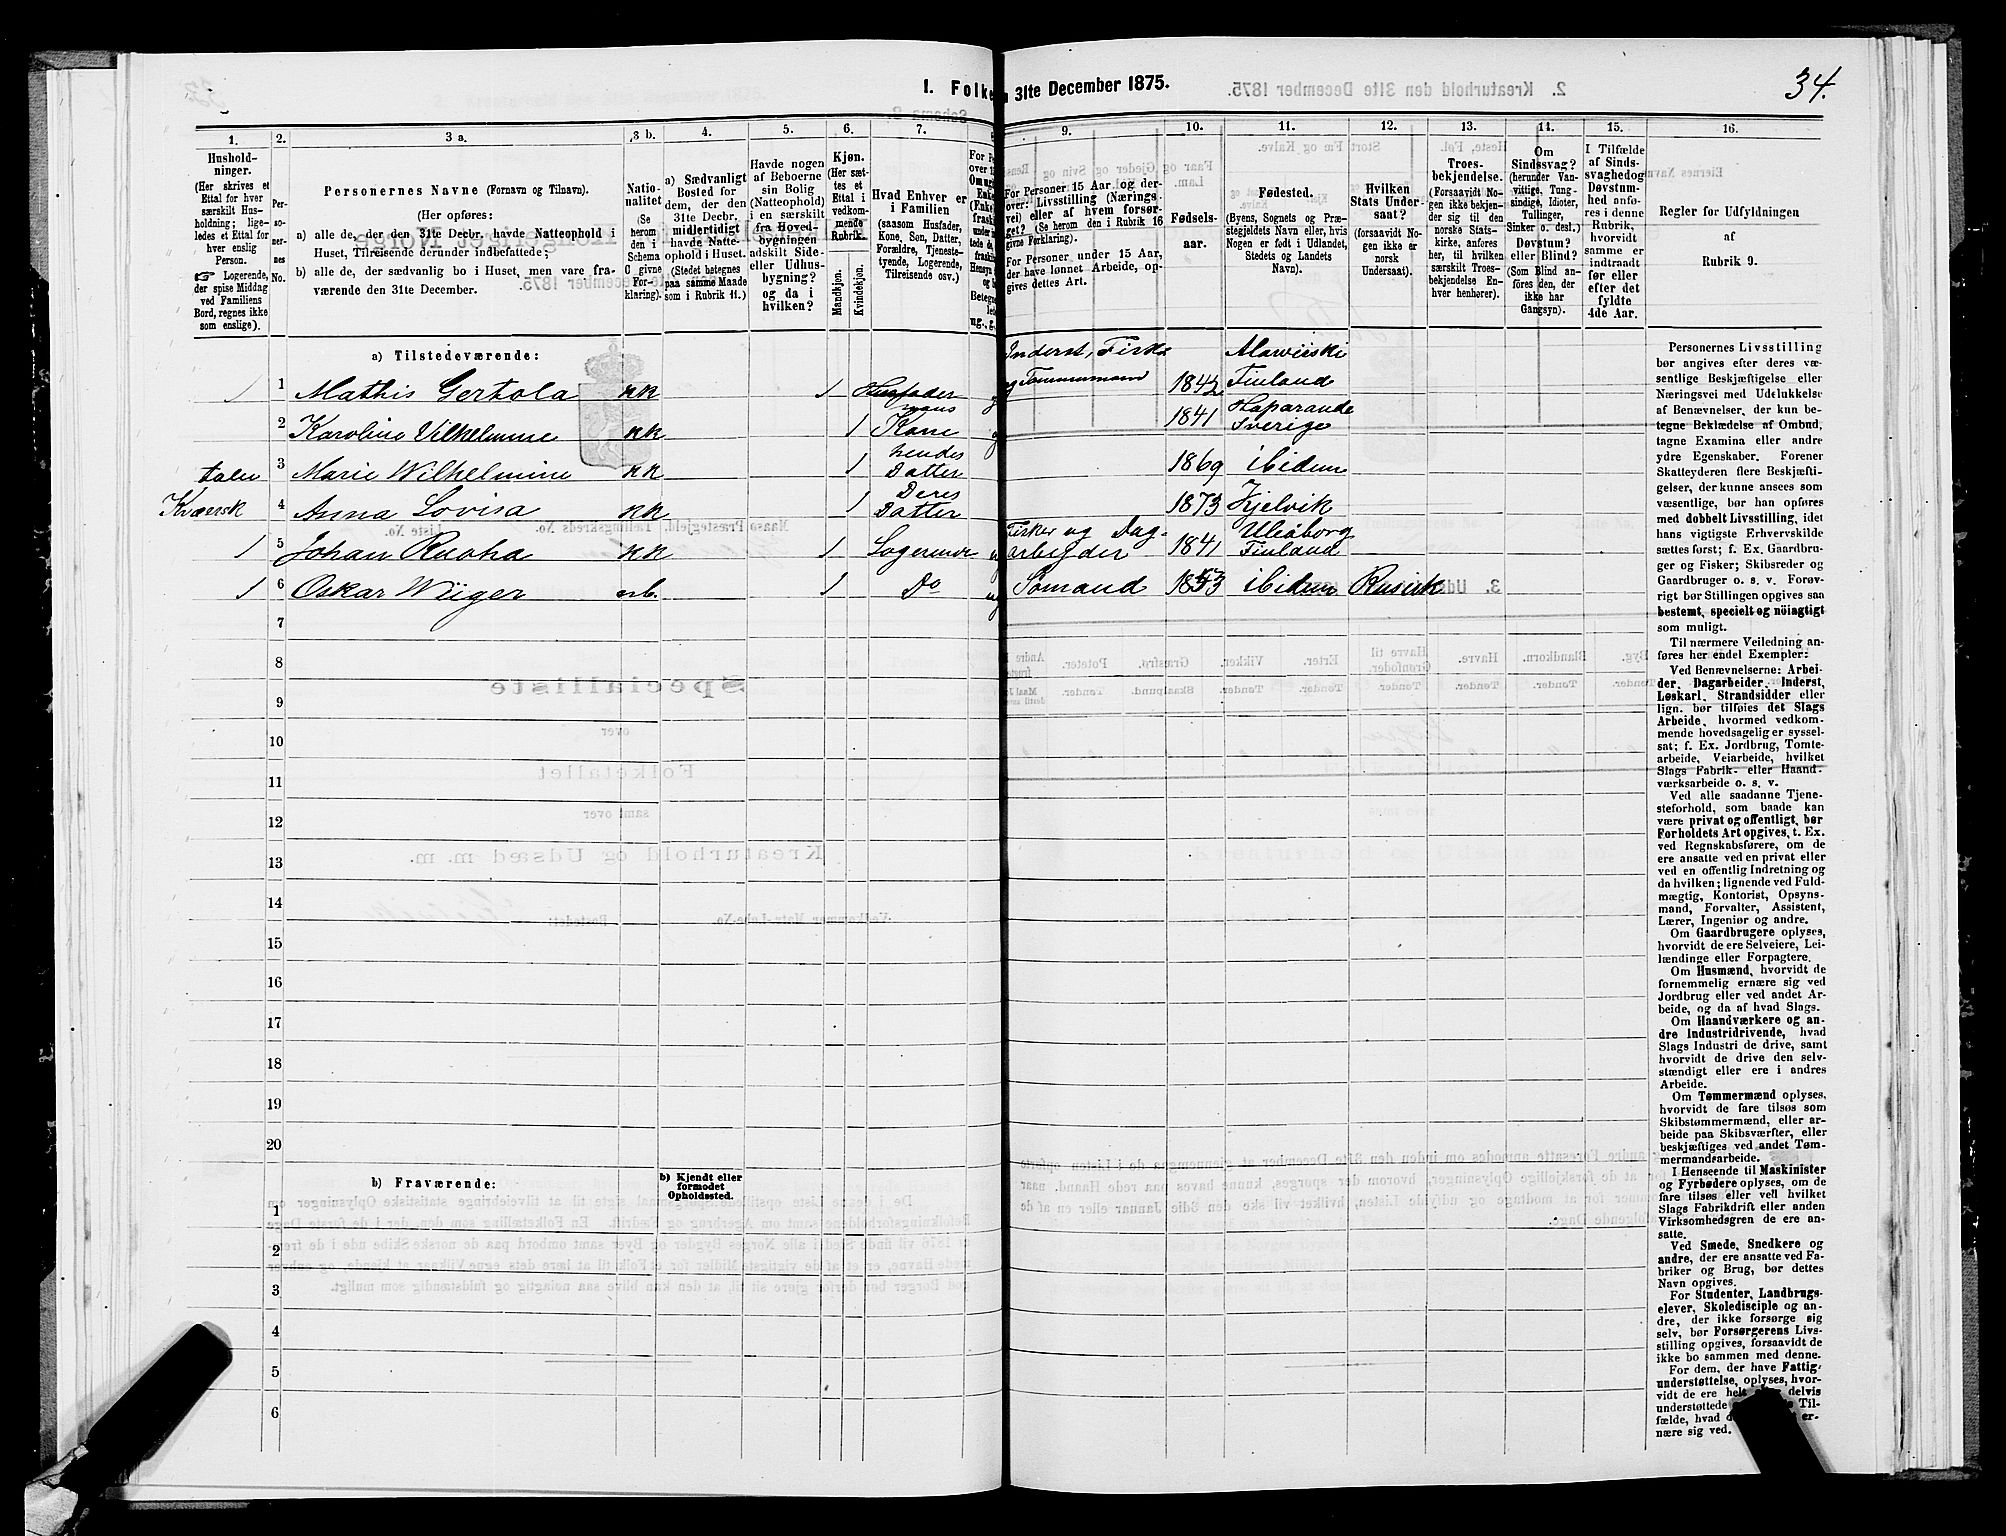 1. Folke
31te December 1875.
34.
1.
2.
3 a.
3 b.
4.
5.
6.
7.
9.
10.
11.
12.
13.
14.
15.
16.
Hushold-
ninger.
(Her skrives et
Ettal for hver
særskilt Hus-
holdning; lige-
ledes et Ettal for
hver enslig
Person.
☞ Logerende,
der spise Middag
ved Familiens
Bord, regnes ikke
som enslige).
Per-
so-
ner-
nes
No.
Personernes Navne (Fornavn og Tilnavn).
(Her opføres:
a) alle de, der den 31te Decbr. havde Natteophold i
Huset, Tilreisende derunder indbefattede;
b) alle de, der sædvanlig bo i Huset, men vare fra-
værende den 31te December.
Natio-
nalitet
(Se
herom
den i
Schema
C givne
For-
klaring).
a) Sædvanligt
Bosted for
dem, der den
31te Decbr.
midlertidigt
havde Natte-
ophold i Huset.
(Stedet betegnes
paa samme Maade
som i Rubrik 11.)
Havde nogen
af Beboerne
sin Bolig
(Natteophold)
i en særskilt
fra Hoved-
bygningen
adskilt Side-
eller Udhus-
bygning?
og da i
hvilken?
Kjøn.
(Her sæt-
tes et
Ettal i
vedkom-
mende
Rubrik.
Mandkjøn.
Kvindekjøn.
Hvad Enhver er
i Familien
(saasom Husfader,
Kone, Søn, Datter,
Forældre, Tjeneste-
tyende, Logerende,
Tilreisende osv.)
For Personer 15 Aar og der-
over: Livsstilling (Nærings-
vei) eller af hvem forsør-
get? (Se herom den i Rubrik 16
givne Forklaring).
For Personer under 15 Aar,
der have lønnet Arbeide, op-
gives dettes Art.
Fødsels-
aar.
Fødested.
(Byens, Sognets og Præ-
stegjeldets Navn eller, hvis
Nogen er født i Udlandet,
Stedets og Landets
Navn).
Hvilken
Stats Under-
saat?
(forsaavidt No-
gen ikke er
norsk
Undersaat).
Troes-
bekjendelse.
(Forsaavidt No-
gen ikke bekjen-
der sig til den
norske Stats-
kirke, anføres
her, til hvilken
særskilt Troes-
bekjendelse En-
hver henhører).
Om
Sindssvag?
(herunder Van-
vittige, Tung-
sindige, Idioter,
Tullinger,
Sinker o. desl.)
Døvstum?
eller Blind?
(Som Blind an-
føres den, der
ikke har
Gangsyn).
I Tilfælde
af Sinds-
svaghedog
Døvstum-
hed anfø-
res i denne
Rubrik,
hvorvidt
samme er
indtraadt
før eller
efter det
fyldte
4de Aar.
Regler for Udfyldningen
af
Rubrik 9.
a) Tilstedeværende:
1 1 Mathis Gertola kk 1 Husfader Inderst, Fisk og Tømmermand 1842 Finland
2 Karoline Vilhelmine kk 1 hans Kone 1841 Haparande Sverige
taler 3 Marie Wilhelmine kk 1 hendes Datter 1869 ibidem
Kvænsk 4 Anna Lovisa kk 1 Deres Datter 1873 Kjelvik
1 5 Johan Ruoha kk 1 Logerende Fisker og Dagarbeider 1841 Uleåborg Finland
1 6 Oskar Wiiger 1 Do Sømand ibidem Rusisk
7
8
9
10
11
12
13
14
15
16
17
18
19
20
b) Fraværende:
b) Kjendt eller
formodet
Opholdssted.
1
2
3
4
5
6
Personernes Livsstilling
bør angives efter deres væ-
sentlige Beskjæftigelse eller
Næringsvei med Udelukkelse
af Benævnelser, der kun be-
tegne Beklædelse af Ombud,
tagne Examina eller andre
ydre Egenskaber. Forener
Skatteyderen flere Beskjæfti-
gelser, der kunne ansees som
væsentlige, bør han opføres
med dobbelt Livsstilling, idet
hans vigtigste Erhvervskilde
sættes først; f. Ex. Gaardbru-
ger og Fisker; Skibsreder og
Gaardbruger o. s. v. Forøv-
rigt bør Stillingen opgives saa
bestemt, specielt og nöiagtigt
som muligt.
Til nærmere Veiledning an-
føres her endel Exempler:
Ved Benævnelserne: Arbei-
der, Dagarbeider, Inderst,
Løskarl, Strandsidder eller
lign. bør tilføies det Slags
Arbeide, hvormed vedkom-
mende hovedsagelig er syssel-
sat; f. Ex. Jordbrug, Tomte-
arbeide, Veiarbeide, hvilket
Slags Fabrik- eller Haand-
værksarbeide o. s. v.
Ved alle saadanne Tjene-
steforhold, som baade kan
være privat og offentligt, bør
Forholdets Art opgives, t. Ex.
ved Regnskabsførere, om de
ere ansatte ved en privat eller
ved en offentlig Indretning og
da hvilken; lignende ved Fuld-
mægtig, Kontorist, Opsyns-
mand, Forvalter, Assistent,
Lærer, Ingeniør og andre.
Om Gaardbrugere oplyses,
hvorvidt de ere Selveiere, Lei-
lændinge eller Forpagtere.
Om Husmænd, hvorvidt de
fornemmelig ernære sig ved
Jordbrug eller ved andet Ar-
beide, og da af hvad Slags.
Om Haandværkere og an-
dre Industridrivende, hvad
Slags Industri de drive, samt
hvorvidt de drive den selv-
stændigt eller ere i andres
Arbeide.
Om Tømmermænd oplyses,
hvorvidt de fare tilsøs som
Skibstømmermænd, eller ar-
beide paa Skibsværfter, eller
beskjæftiges ved andet Tøm-
mermandsarbeide.
I Henseende til Maskinister
og Fyrbødere oplyses, om de
fare tilsøs eller ved hvilket
Slags Fabrikdrift eller anden
Virksomhedsgren de ere an-
satte.
Ved Smede, Snedkere og
andre, der ere ansatte ved Fa-
briker og Brug, bør dettes
Navn opgives.
For Studenter, Landbrugs-
elever, Skoledisciple og an-
dre, der ikke forsørge sig
selv, bør Forsørgerens Livs-
stilling opgives, forsaavidt de
ikke bo sammen med denne.
For dem, der have Fattig-
understøttelse, oplyses, hvor-
vidt de ere delvis
understøttede Til-
fælde, hvad er-
nære sig ved.